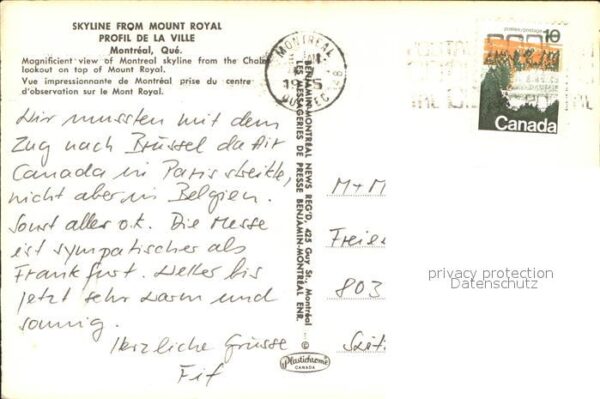 SKYLINE FROM MOUNT ROYAL
PROFIL DE LA VILLE
Montréal, Qué.
Magnificient view of Montreal skyline from the Chalet
lookout on top of Mount Royal.
Vue impressionnante de Montréal prise du centre
d'observation sur le Mont Royal.
Wir mussten mit dem
Zug nach Brüssel da Air
Canada in Paris streikte,
nicht aber in Belgien.
Sonst alles o.k. Die Messe
ist sympatischer als
Frankfurt. Wetter bis
jetzt sehr warm und
sonnig.
Herzliche Grüsse
Fif
BENJAMIN-MONTREAL NEWS REG'D. 425 Guy St. Montréal
LES MESSAGERIES DE PRESSE BENJAMIN-MONTRÉAL ENR.
©
Plastichrome
CANADA
MONTREAL
QUEBEC
10
Canada
M+M
Freie
803
privacy protection
Datenschutz